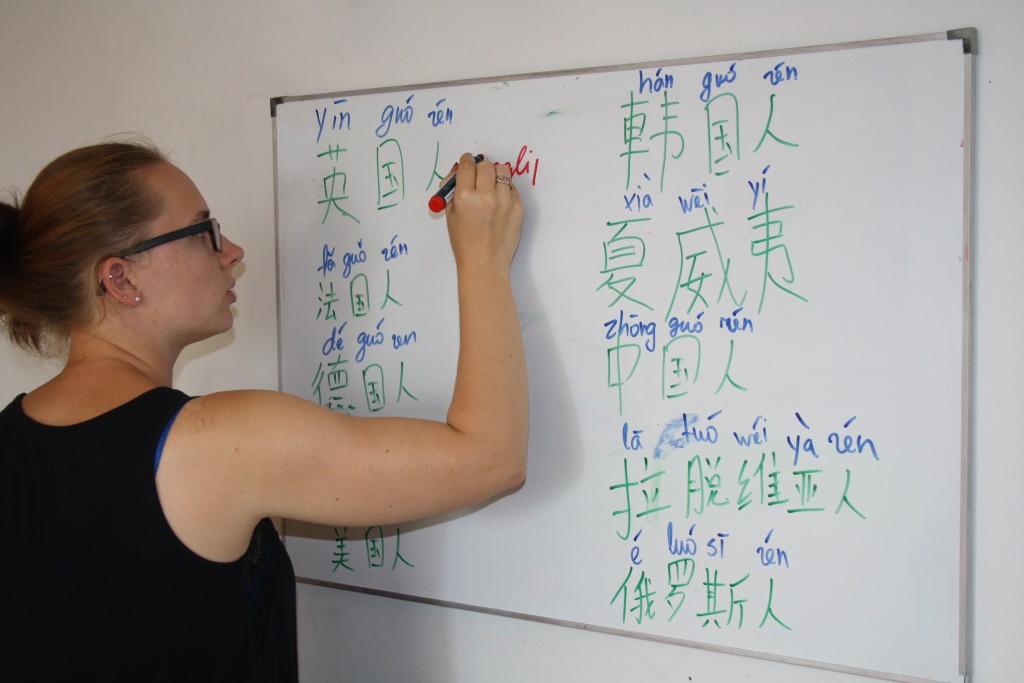 yīn guó rén
英国人
fǎ guó rén
法国人
dé guó ren
德国人
美国人
hán guó rén
韩国人
xià wēi yí
夏威夷
zhōng guó rén
中国人
lā tuó wéi yà rén
拉脱维亚人
é luó sī rén
俄罗斯人